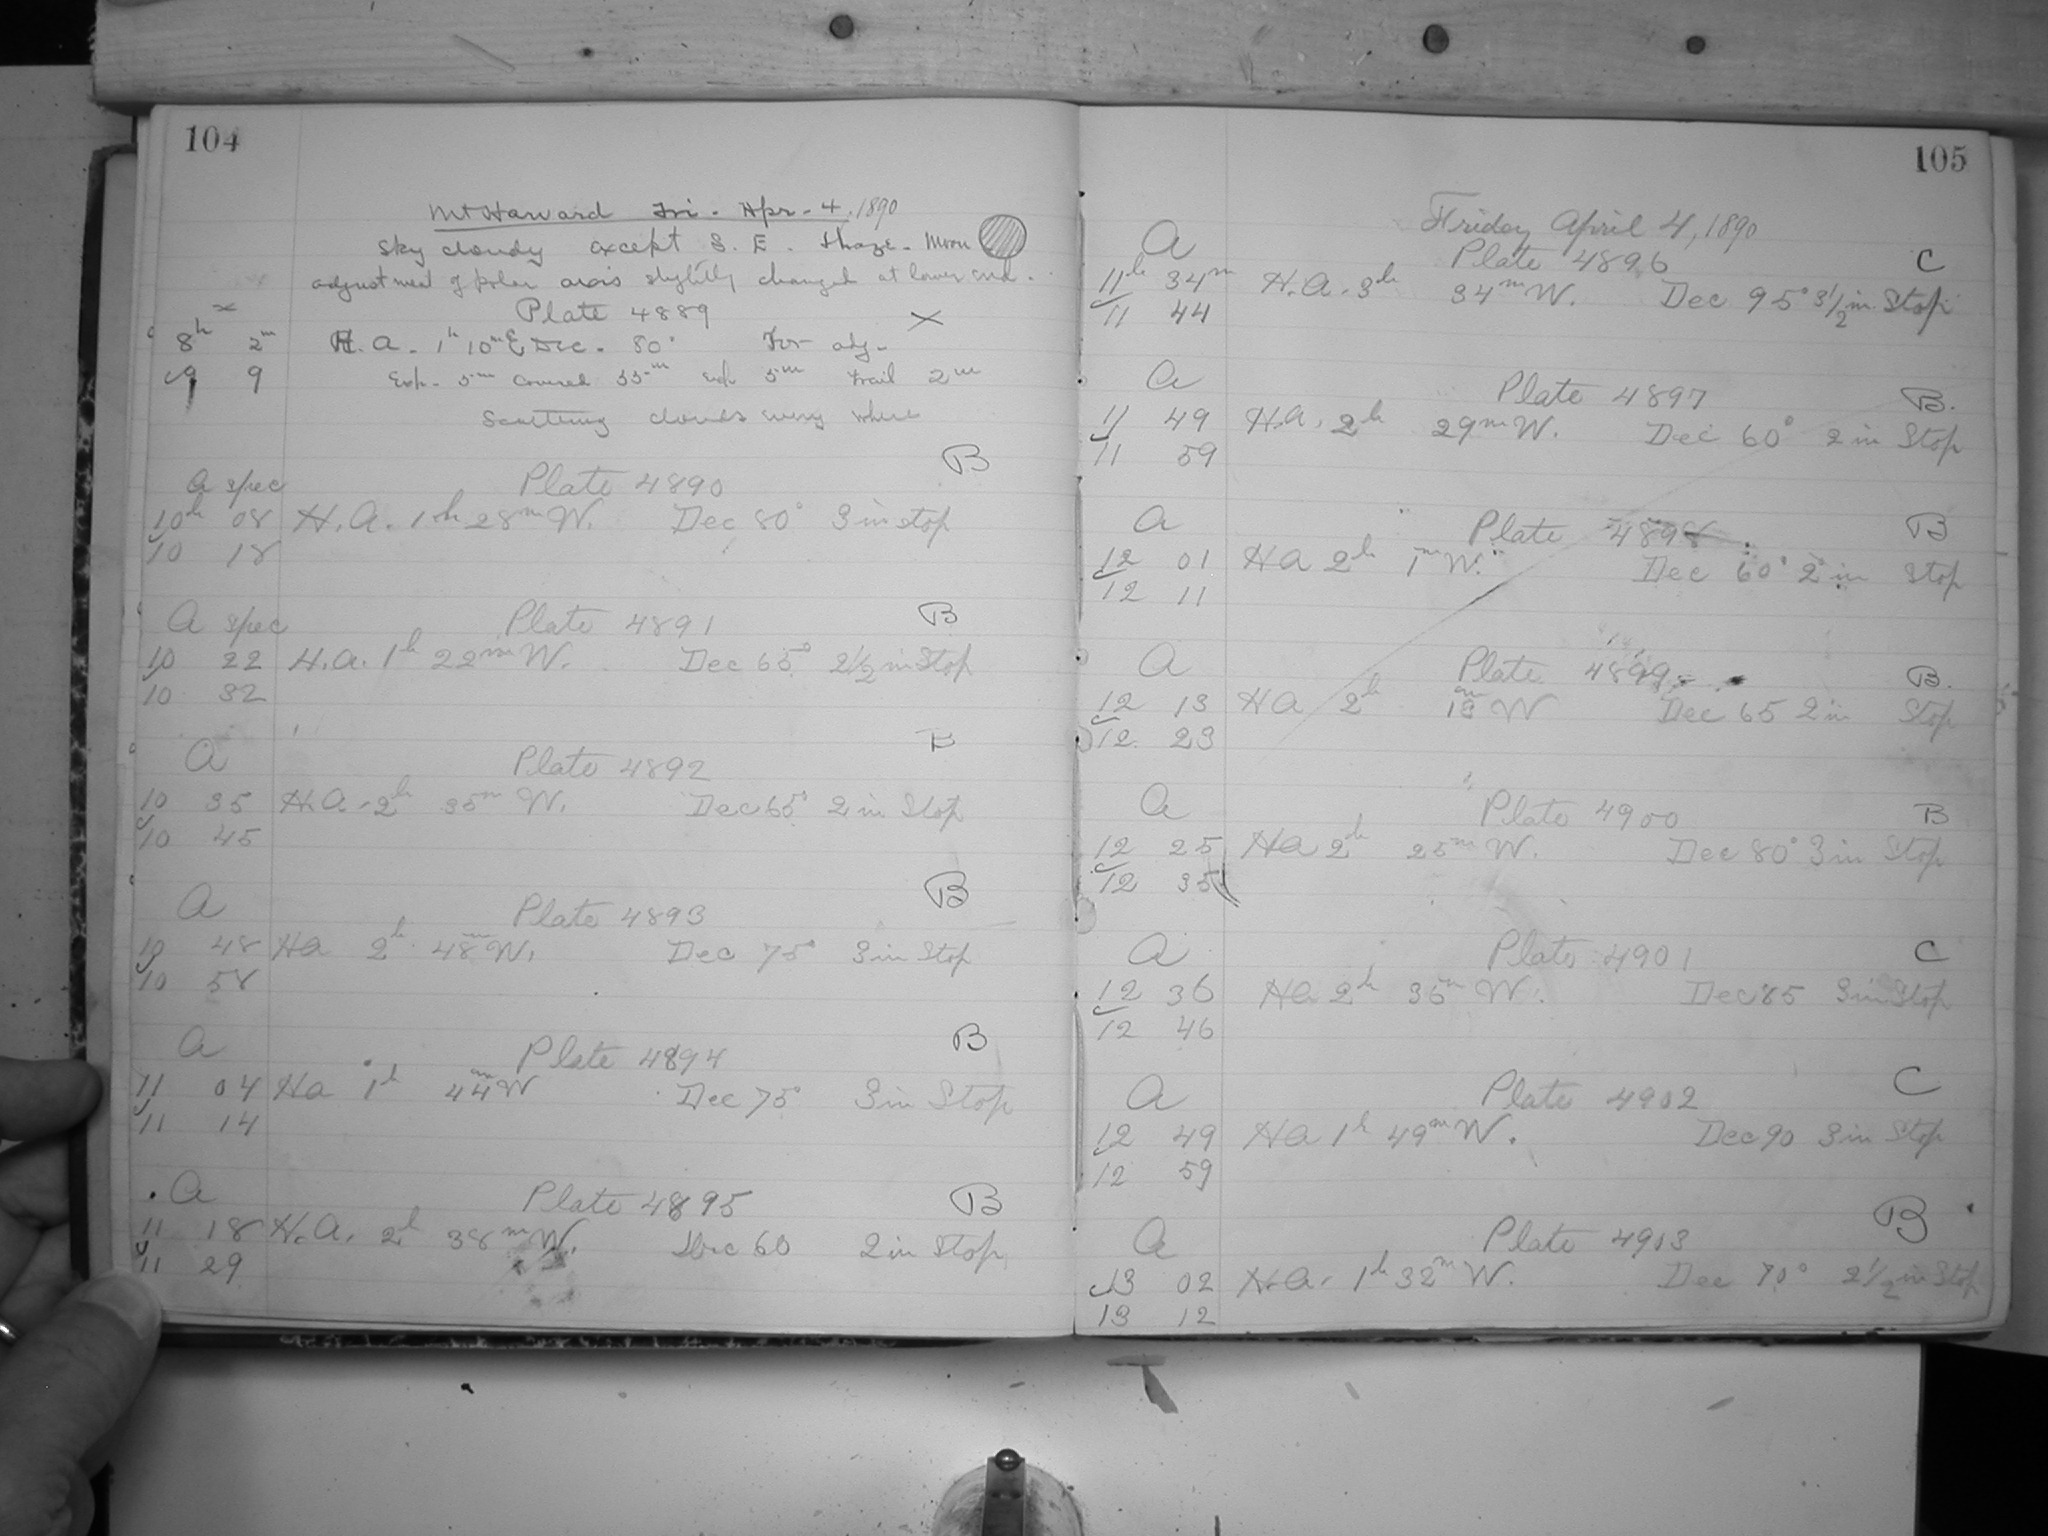 104
Mt Harvard Fri. Apr. 4, 1890
Sky cloudy except S. E. Haze. Moon
adjustment of polar axis slightly changed at lower end.
x Plate 4889 x
8h 2m H. A. 1h 10m E Dec. 80° For adj.
9 9 Exp. 5m covered 55m exp 5m trail 2m
Scattering clouds every where
B
A spec Plate 4890
10h 08 H. A. 1h 28m W. Dec 80° 3 in stop
10 18
A spec Plate 4891 B
10 22 H. A. 1h 22m W. Dec 65° 2 1/2 in Stop
10 32
A Plate 4892 B
10 35 H. A. 2h 35m W. Dec 65° 2 in Stop
10 45
A Plate 4893 B
10 48 HA 2h 48m W. Dec 75° 3 in Stop
10 58
A Plate 4894 B
11 04 HA 1h 44m W Dec 75° 3 in Stop
11 14
A Plate 4895 B
11 18 H. A. 2h 38m W. Dec 60 2 in Stop
11 29
105
Friday April 4, 1890
A Plate 4896 C
11h 34m H. A. 3h 34m W. Dec 95° 3 1/2 in. Stop
11 44
A Plate 4897 B.
11 49 H. A. 2h 29m W. Dec 60° 2 in Stop
11 59
A Plate 4898 B
12 01 HA 2h 1m W. Dec 60° 2 in Stop
12 11
A Plate 4899 B.
12 13 HA 2h 13m W Dec 65 2 in Stop
12 23
A Plate 4900 B
12 25 HA 2h 25m W. Dec 80° 3 in Stop
12 35
A Plate 4901 C
12 36 HA 2h 36m W. Dec 85 3 in Stop
12 46
A Plate 4902 C
12 49 HA 1h 49m W. Dec 90 3 in Stop
12 59
A Plate 4903 B
13 02 H. A. 1h 32m W. Dec 70° 2 1/2 in Stop
13 12